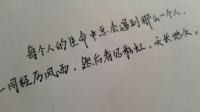 每个人的生命中总会遇到那么一个人，
一同经历风雨，然后看彩虹，天长地久。